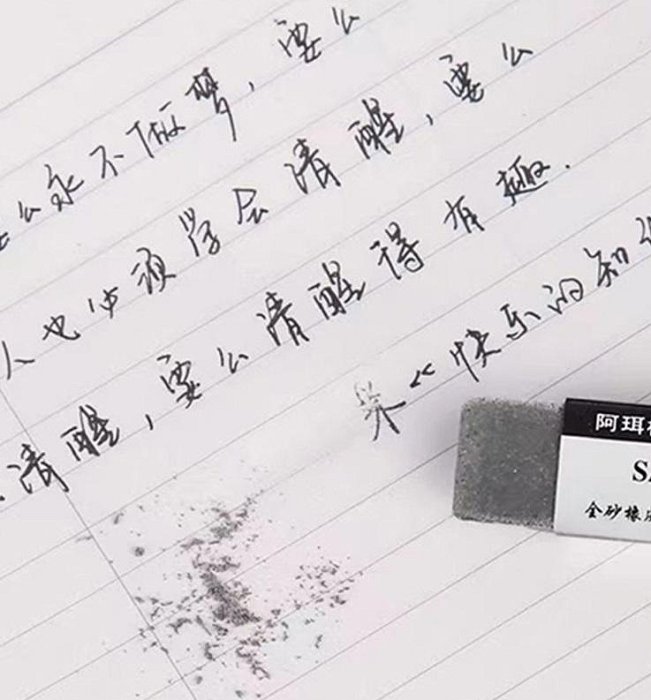 么永不做梦，要么
人也必须学会清醒，要么
清醒，要么清醒得有趣．
《快乐的知
阿珥
全砂橡